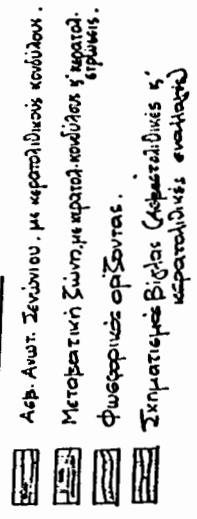 Ασβ. Ανωτ. Σενώνιου, με κερατολιθικούς κονδύλους.
Μεταβατική ζώνη, με κερατολ. κονδύλους κ' κερατολ.
στρώσεις.
Φωσφορικός ορίζοντας.
Σχηματισμός Βίγλας (Ασβεστολιθικές κ'
κερατολιθικές εναλλαγές)